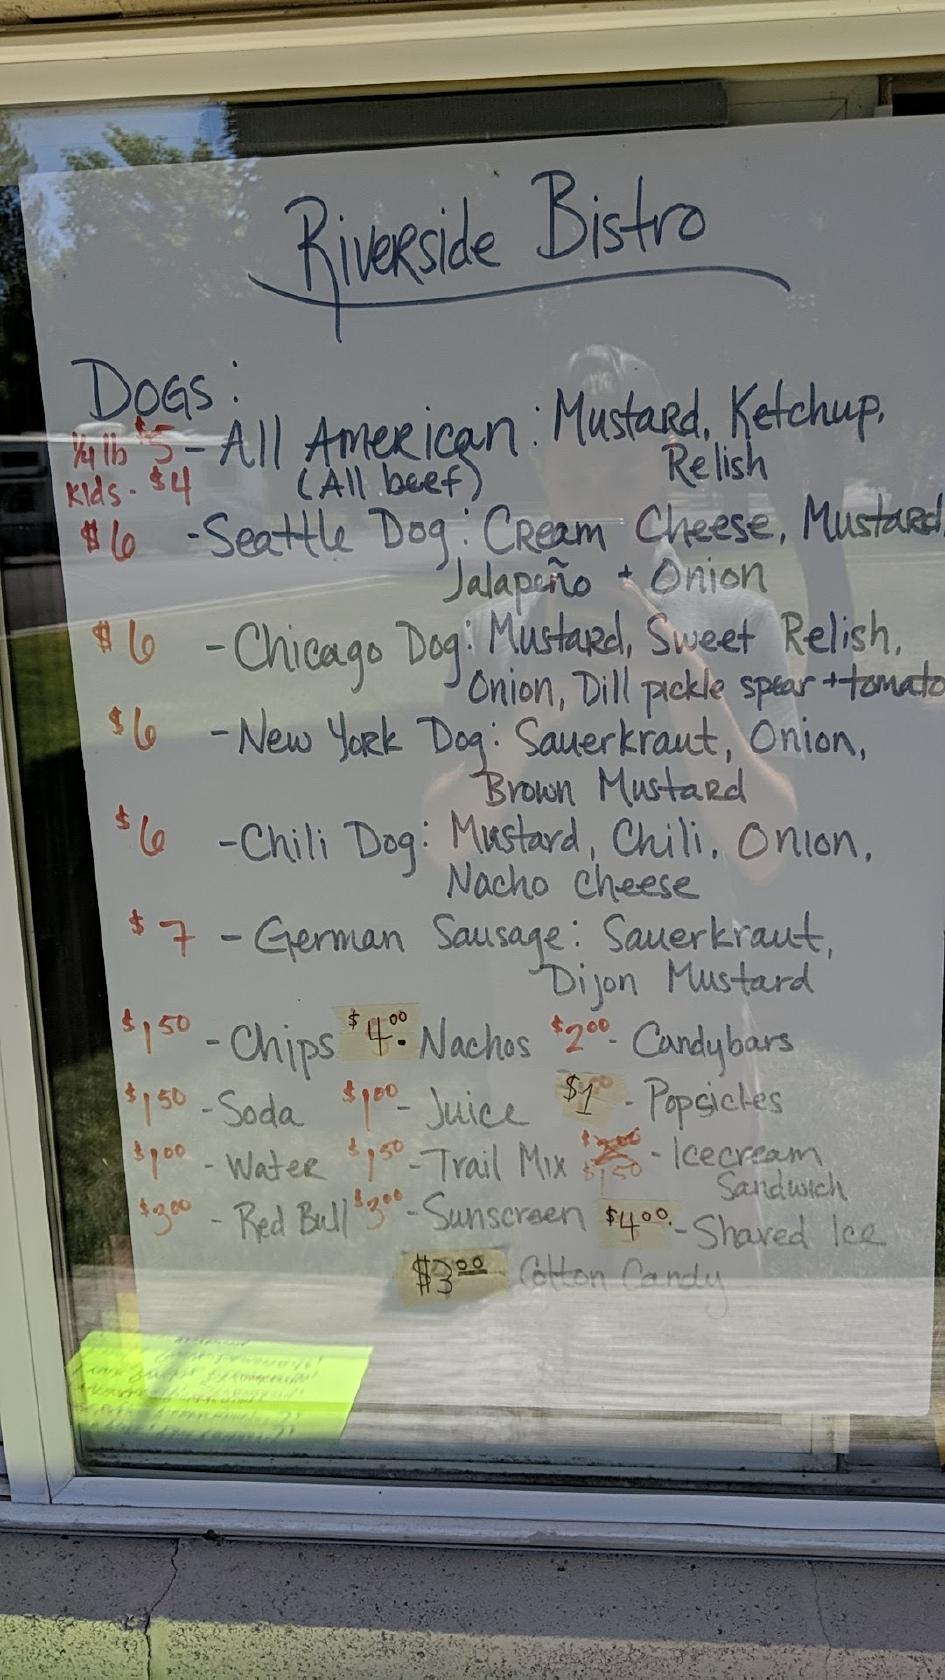 Riverside Bistro
Dogs:
1/4 lb $5 - All American: Mustard, Ketchup,
Relish
Kids - $4 (All beef)
$6 - Seattle Dog: Cream Cheese, Mustard,
Jalapeño + Onion
$6 - Chicago Dog: Mustard, Sweet Relish,
Onion, Dill pickle spear + tomato
$6 - New York Dog: Sauerkraut, Onion,
Brown Mustard
$6 - Chili Dog: Mustard, Chili, Onion,
Nacho cheese
$7 - German Sausage: Sauerkraut,
Dijon Mustard
$1.50 - Chips $4.00 - Nachos $2.00 - Candybars
$1.50 - Soda $1.00 - Juice $1 - Popsicles
$1.00 - Water $1.50 - Trail Mix $1.50 - Icecream
Sandwich
$3.00 - Red Bull $3.00 - Sunscreen $4.00 - Shaved Ice
$3.00 Cotton Candy